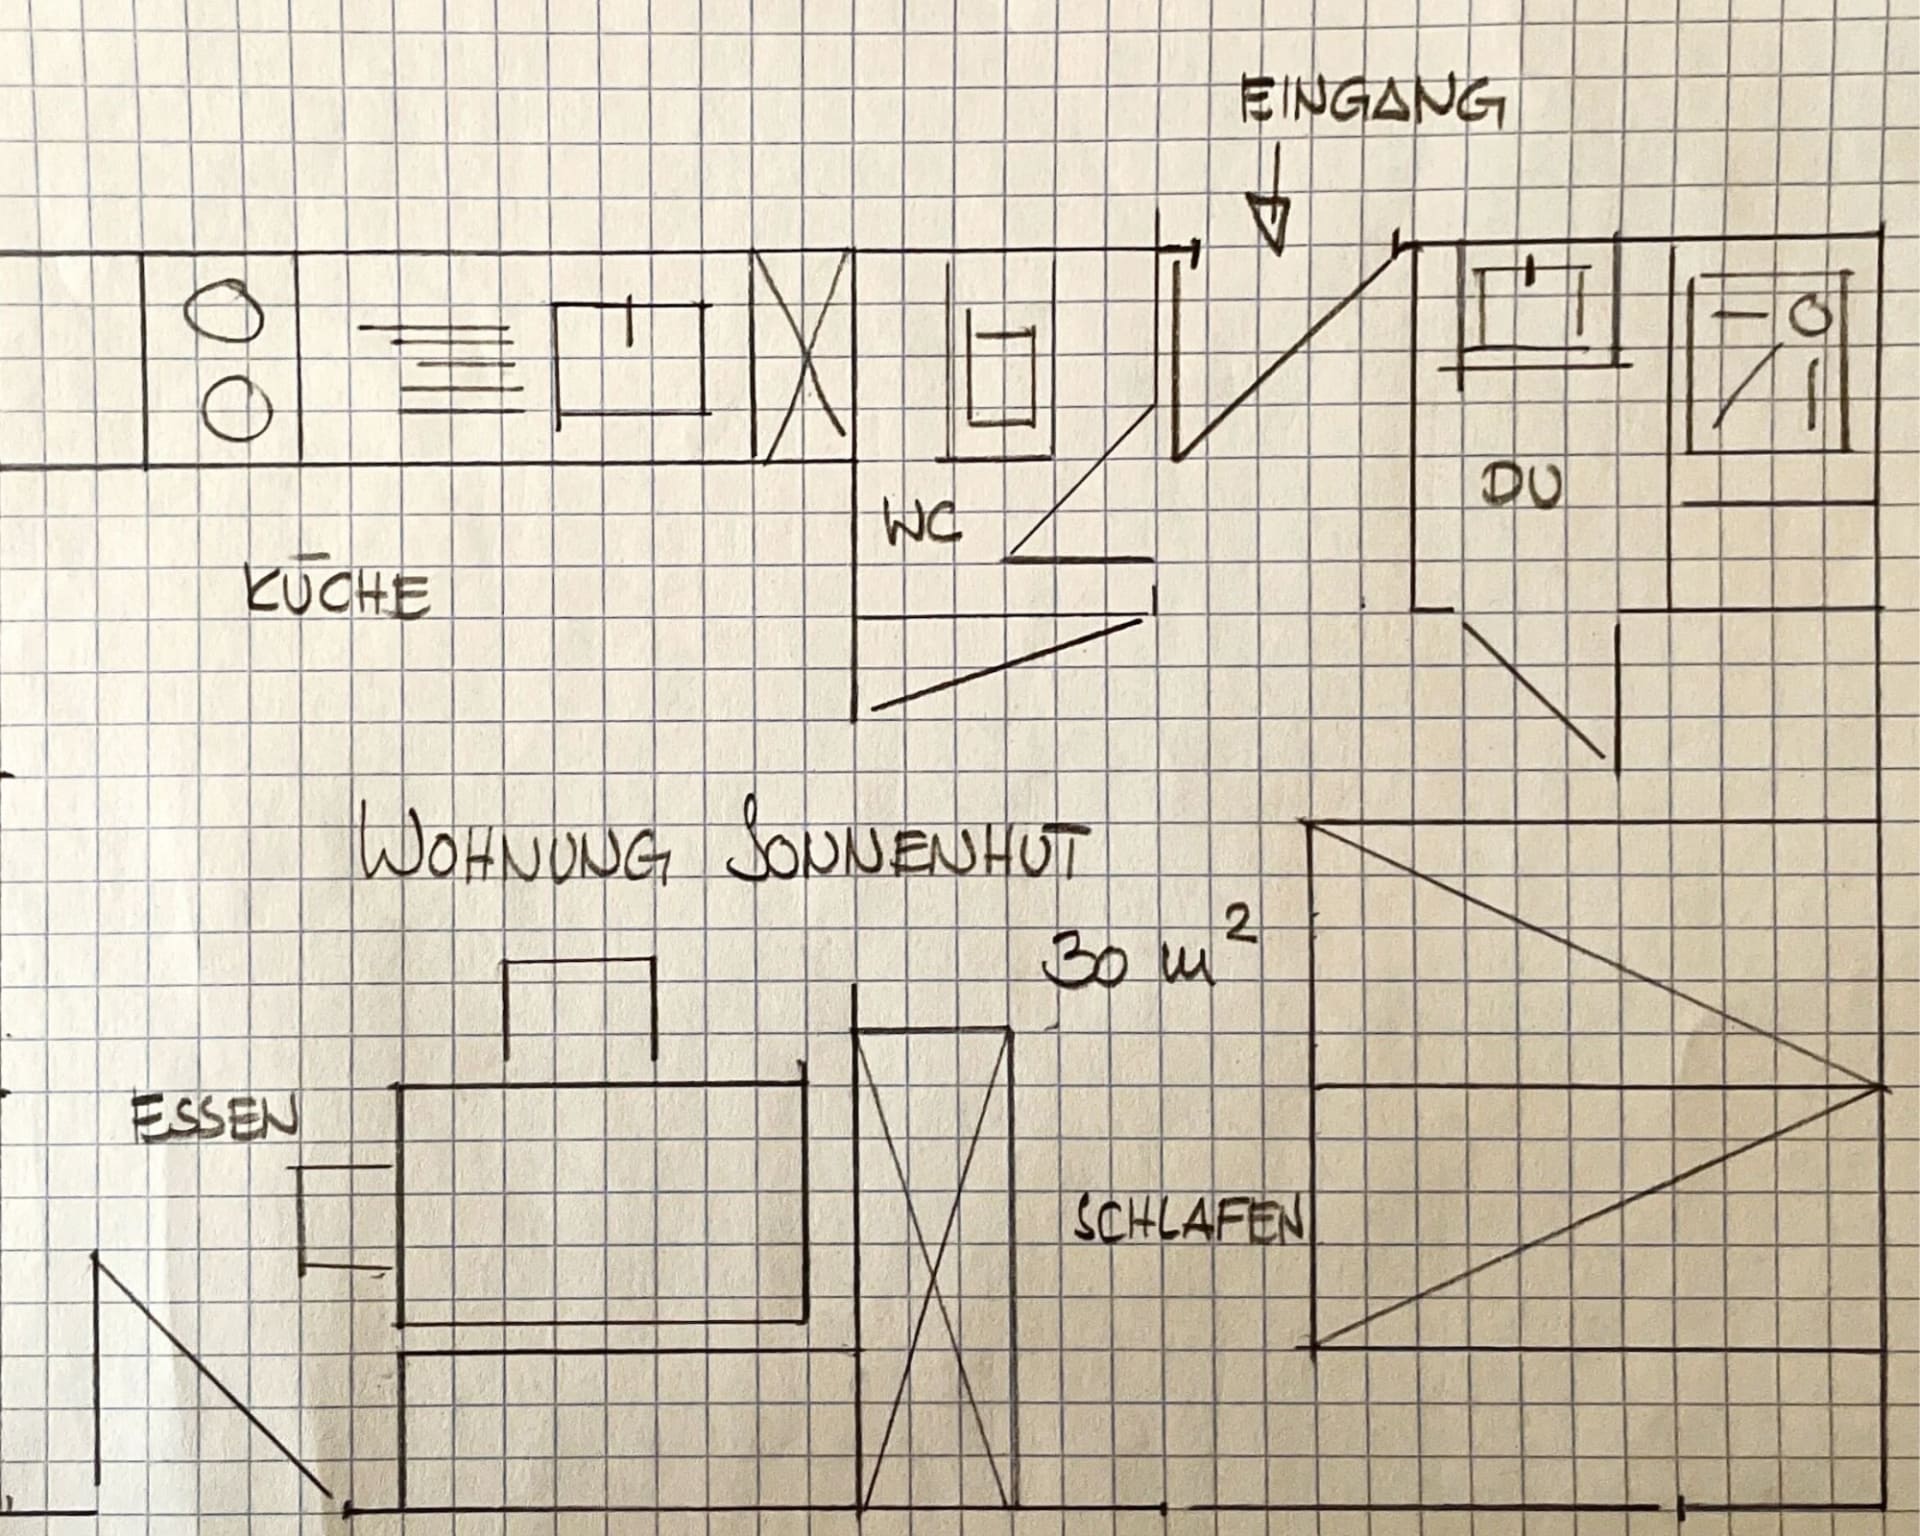 EINGANG
DU
WC
KÜCHE
WOHNUNG SONNENHUT
30 m²
ESSEN
SCHLAFEN